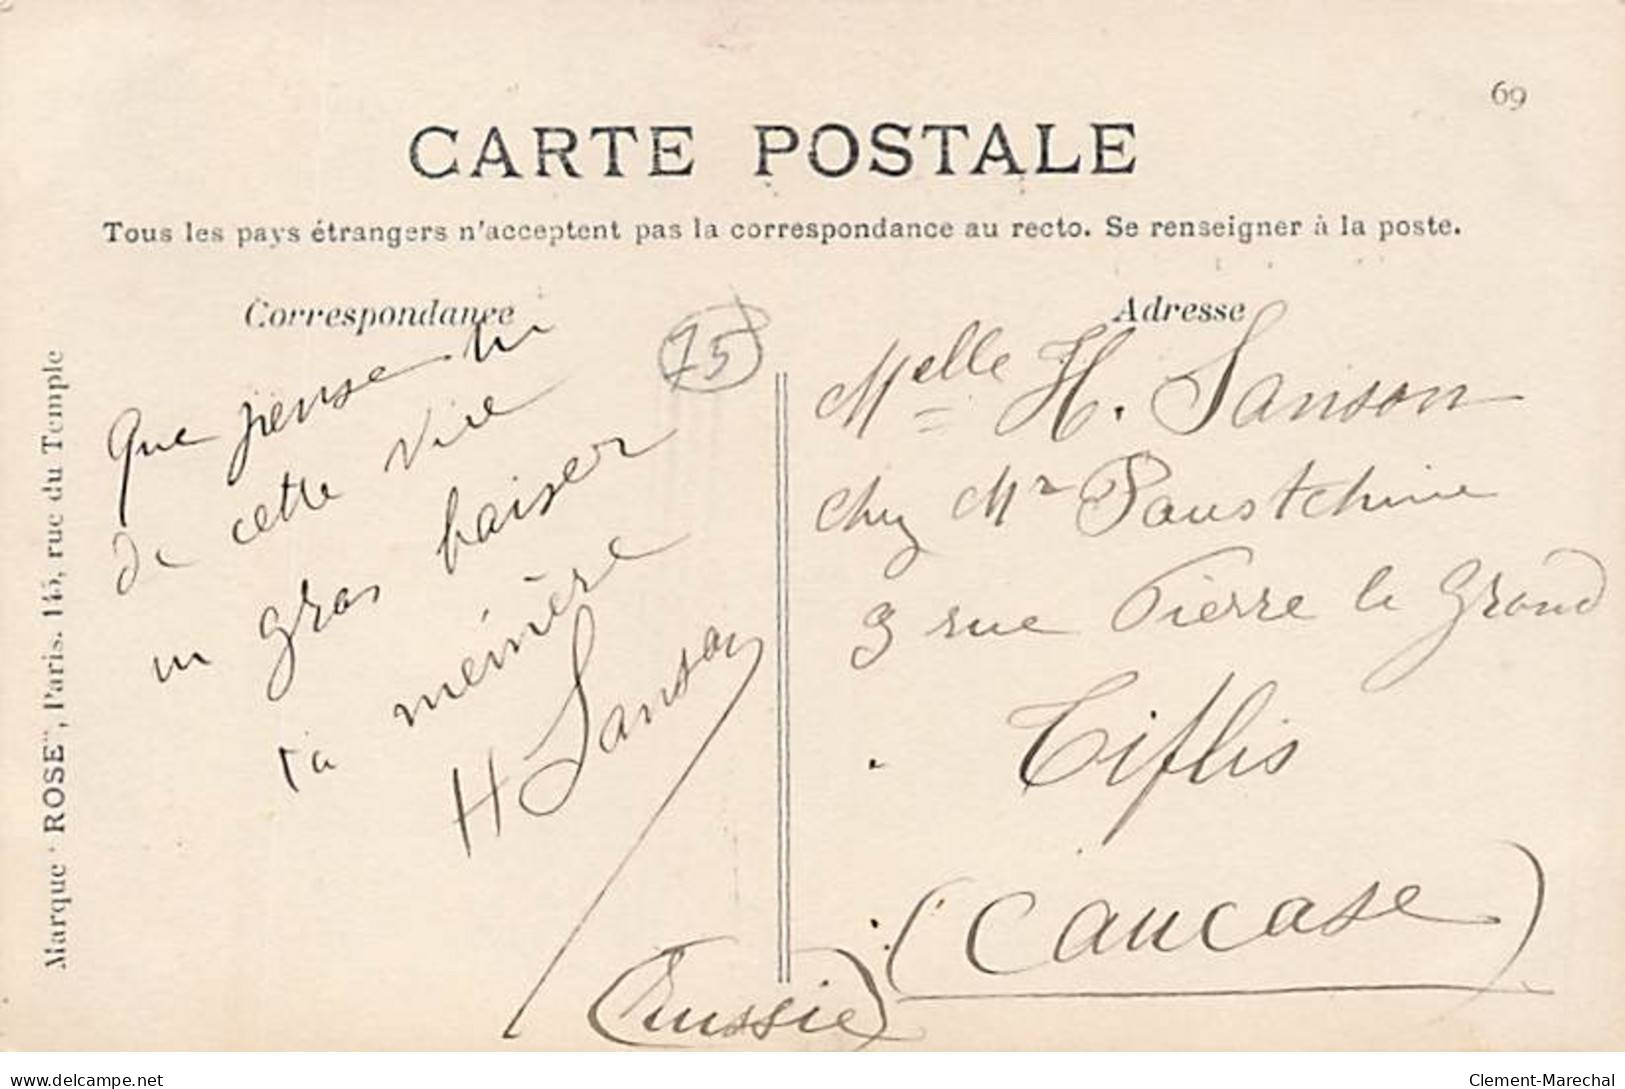 69
CARTE POSTALE
Tous les pays étrangers n'acceptent pas la correspondance au recto. Se renseigner à la poste.
Correspondance
75
Que pense tu
de cette vue
un gros baiser
ta mémère
H Sanson
Adresse
Melle H. Sanson
chez Mr Poustchine
9 rue Pierre le Grand
Tiflis
(Caucase)
(Russie)
Marque "ROSE", Paris. 145, rue du Temple
delcampe.net
Clement-Marechal